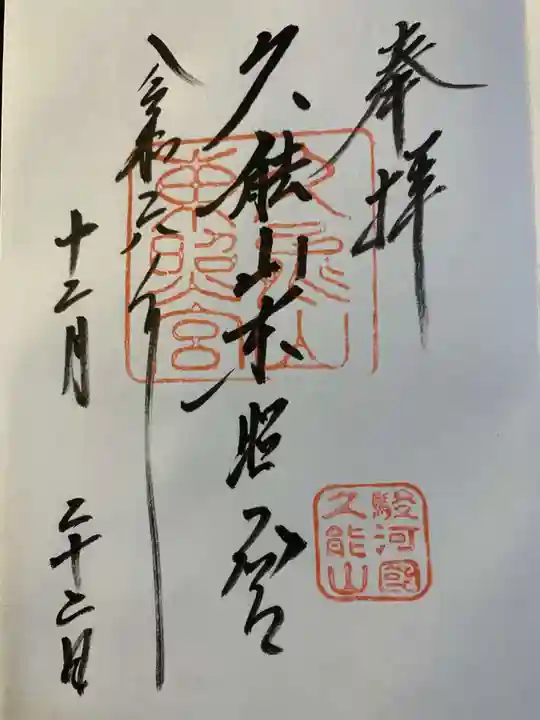 奉拝
久能山東照宮
令和六年
十二月 二十二日
久能山
東照宮
駿河國
久能山